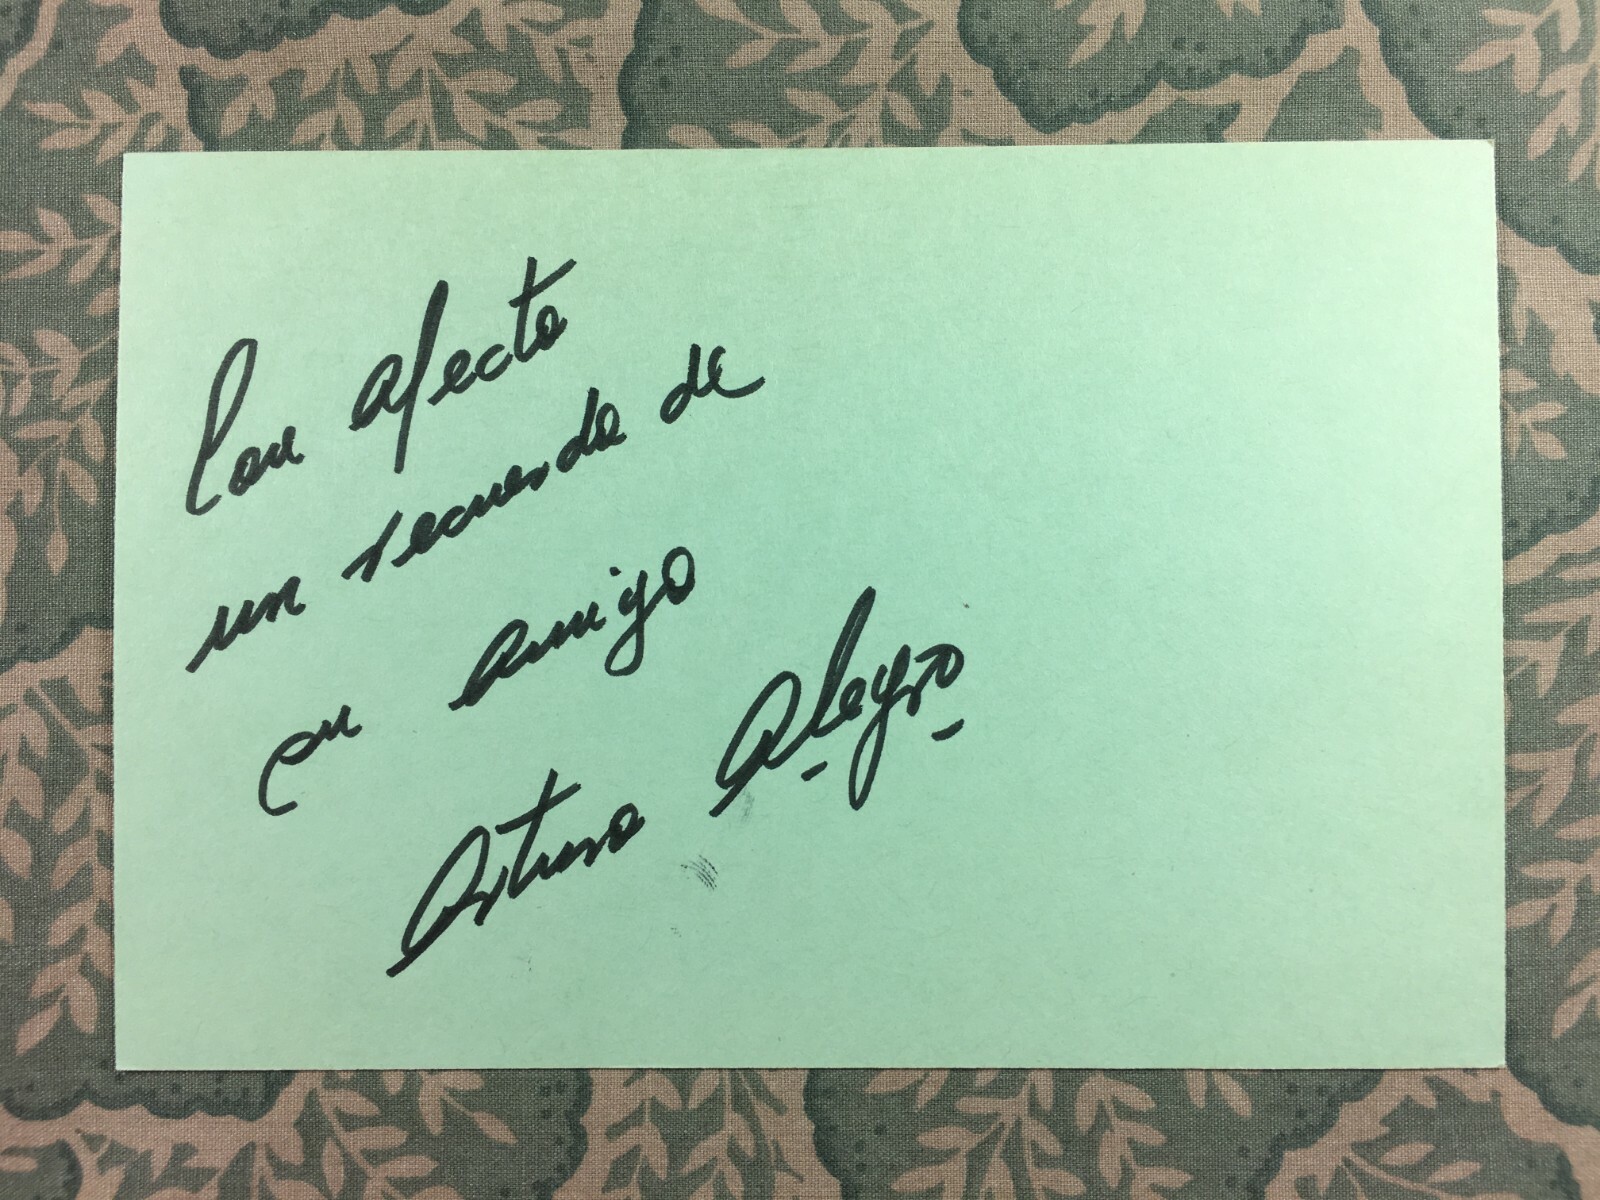 Con afecto
un recuerdo de
su amigo
Arturo Alegro